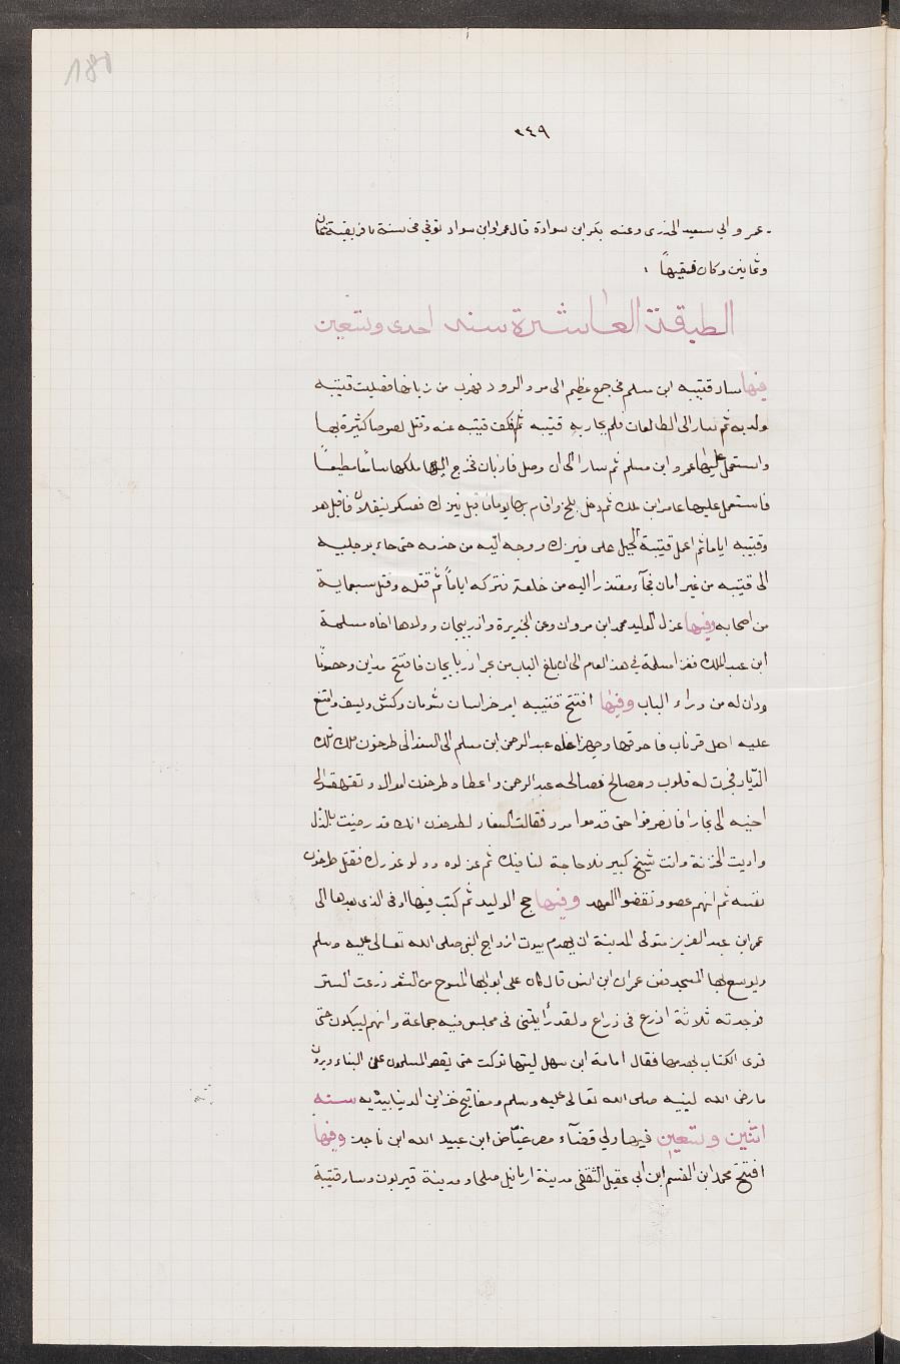 181
٢٤٩
عمر و ابي سعيد الخدرى وعنه بكر ابن سوادة قال عمرو ابن سواد توفي فى سنة بافريقية ثمان
وثمانين وكان فقيهاً :
الطبقة العاشرة سنه احدى وتسعين
فيها سار قتيبه ابن مسلم فى جمع عظيم الى مرو الرود فهرب من زبانها فصلبت قتيبه
ولديه ثم سار الى الطالقان فلم يحاربه قتيبه ثم فكف قتيبه عنه وقتل لصوصا كثيرة بها
واستعمل عليها عمرو ابن مسلم ثم سار الى ان وصل فارياب فخرج اليها ملكها سامعا مطيعاً
فاستعمل عليها عامر ابن ملك ثم دخل بلخ واقام بها يوما فاقبل نيزك فعسكر بنقلان فاقبل هو
وقتيبه اياما ثم اعمل قتيبة الحيل على نيزك ووجه اليه من خدمه حتى جاء برجليه
الى قتيبه من غير امان فجآء معتذراً اليه من خلعه فتركه اياماً ثم قتله وقتل سبعماية
من اصحابه وفيها عزل الوليد محمد ابن مروان وعن الجزيرة واذربيجان وولاها اخاه مسلمة
ابن عبد الملك فغزا مسلمة في هذ العام الى ان بلغ الباب من بحر اذربايجان فافتتح مداين وحصونا
ودان له من وراء الباب وفيها افتتح قتيبه امير خراسان شومان وكش ونسف وامتنع
عليه اهل فرياب فاحرقها وجهز اخاه عبد الرحمن ابن مسلم الى السغد الى طرخون ملك تلك
الديار فجرت له قلوب ومصالح فصالحه عبد الرحمن واعطاه طرخون اموالا وتقهقر الى
اخيه الى بخارا فانصرفوا حتى قدموا مرو فقالت السغد لطرخون انك قد رضيت بالذل
واديت الجزية وانت شيخ كبير فلا حاجة لنا فيك ثم عزلوه وولو غورك فقتل طرخون
نفسه ثم انهم عصوو نقضوا العهد وفيها حج الوليد ثم كتب فيها اوفى الذى بعدها الى
عمر ابن عبد العزيز متولى المدينة ان يهدم بيوت ازواج النبى صلى الله تعالى عليه وسلم
ويوسع بها المسجد فعن عمران ابن انس قال كان على ابوابها المسوح من الشعر ذرعت الستر
فوجدته ثلاثة اذرع فى ذراع ولقد رأيتنى فى مجلس فيه جماعة وانهم ليبكون حتى
قرى الكتاب بهدمها فقال امامة ابن سهل ليتها تركت حتى يقصر المسلمون على البناء ويرون
ما رضى الله لنبيه صلى الله تعالى عليه وسلم ومفاتيح خزاين الدنيا بيديه سنه
اثنين وتسعين فيها ولي قضآء مصر عياض ابن عبيد الله ابن ناجد وفيها
افتتح محمد ابن القسم ابن ابي عقيل الثقفى مدينة ارمانيل صلحا ومدينة قيربون وسار قتيبة